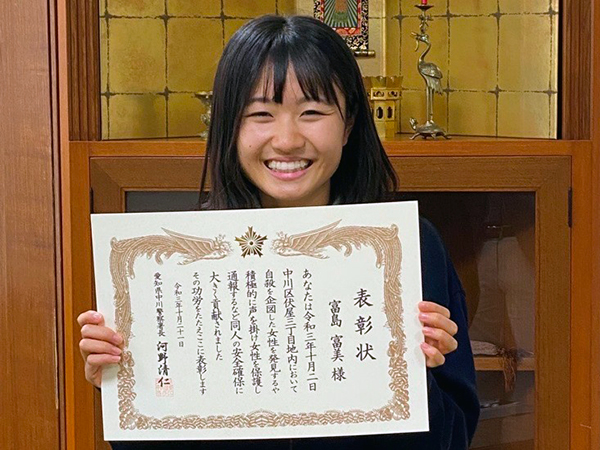 表彰状
富島 富美 様
あなたは令和三年十月二日
中川区伏屋三丁目地内において
自殺を企図した女性を発見するや
積極的に声を掛け女性を保護し
通報するなど同人の安全確保に
大きく貢献されました
その功労をたたえここに表彰します
令和三年十月二十一日
愛知県中川警察署長 河野清仁